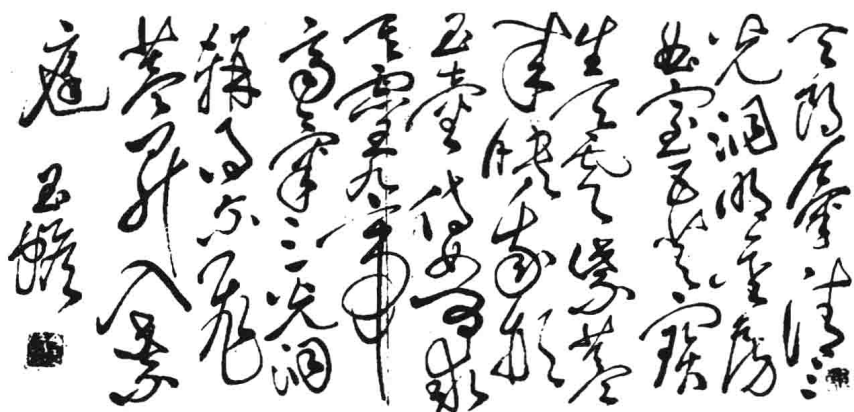 天朗氣清三
光洞明金房
曲室五芝寶
生天雲紫蓋
來映我形
玉童侍女為我
致靈九帝
齊氣三光洞
軿得尔飛
蓋昇入紫
庭 玉蟾